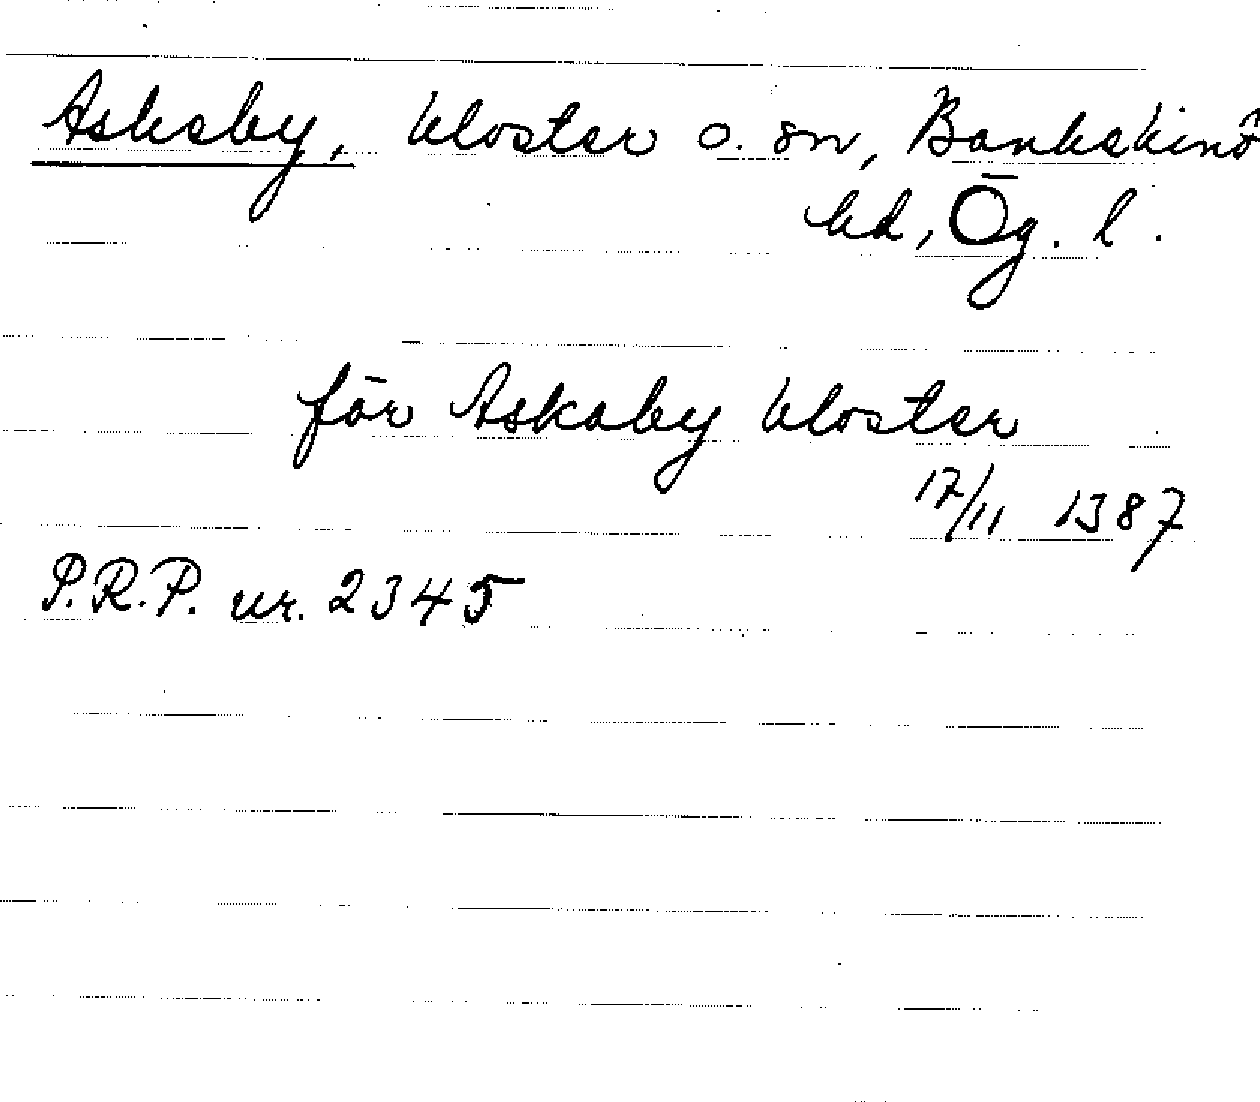 Askeby, kloster o. sn, Bankekinds
hd, Ög. l.
för Askaby kloster
17/11 1387
P.R.P. nr. 2345